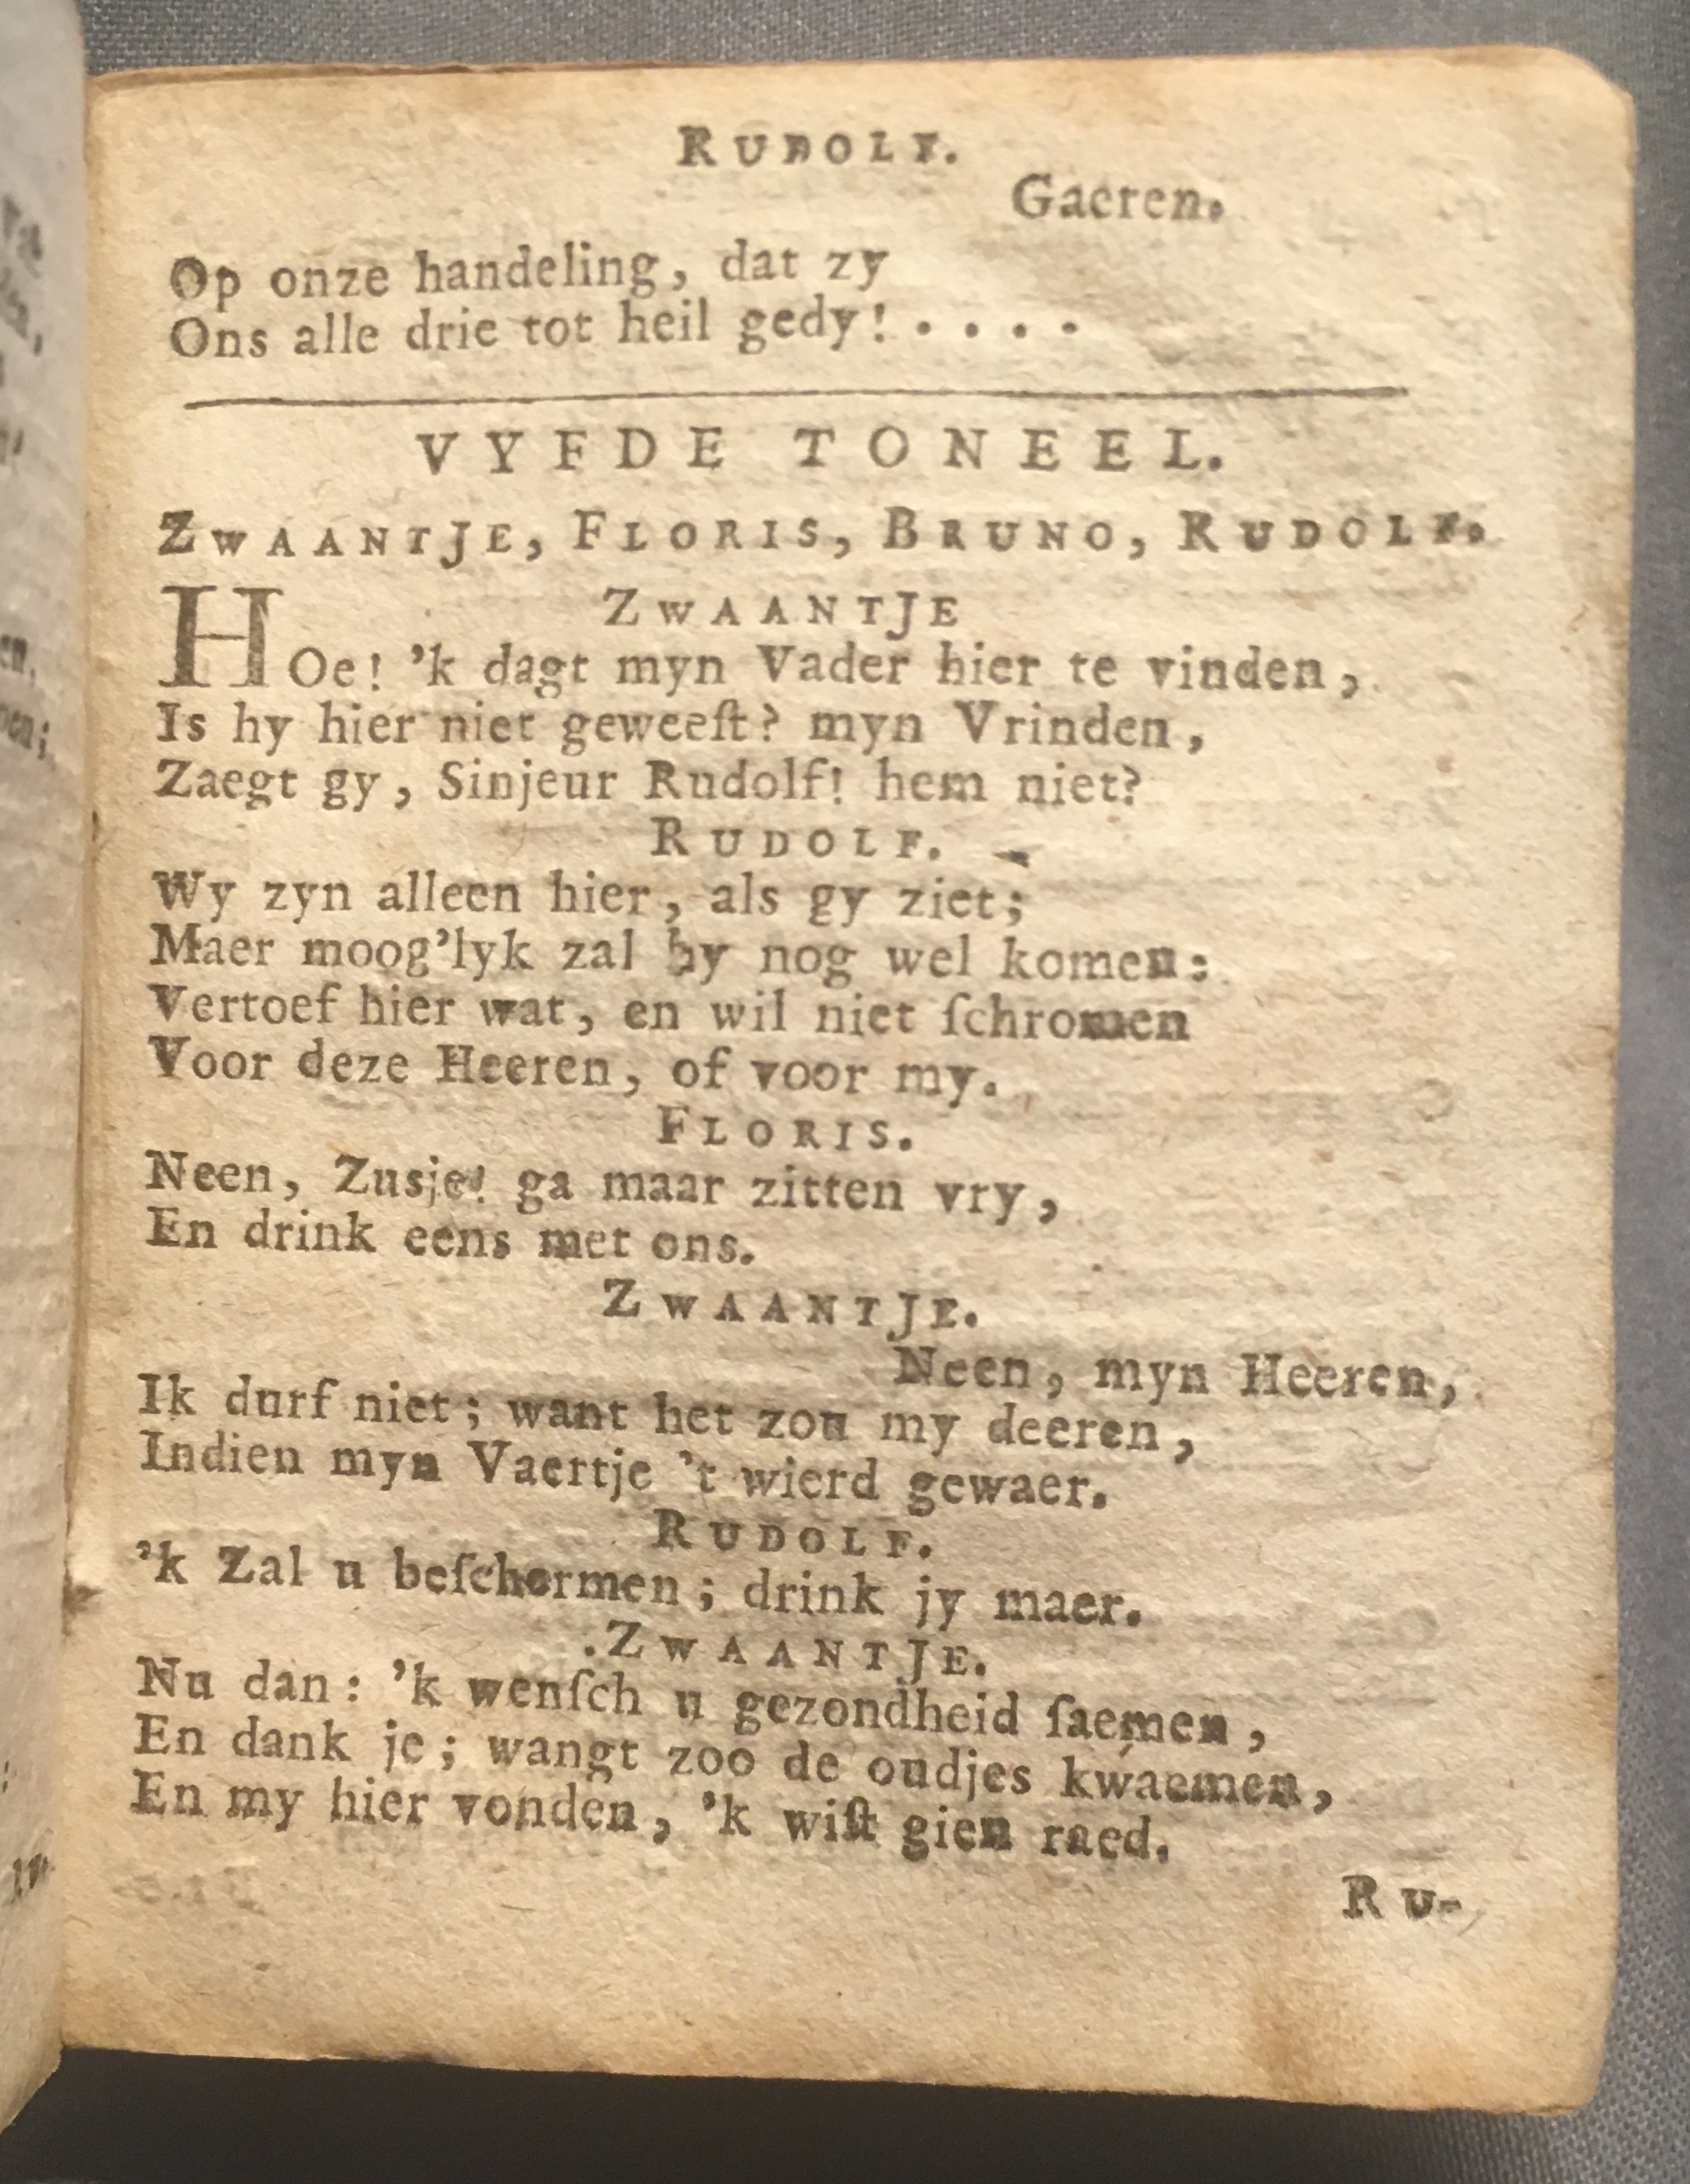 RUDOLF.
Gaeren.
Op onze handeling, dat zy
Ons alle drie tot heil gedy! . . . .
VYFDE TONEEL.
ZWAANTJE, FLORIS, BRUNO, RUDOLF.
ZWAANTJE
HOe! 'k dagt myn Vader hier te vinden,
Is hy hier niet geweeſt? myn Vrinden,
Zaegt gy, Sinjeur Rudolf! hem niet?
RUDOLF.
Wy zyn alleen hier, als gy ziet;
Maer moog'lyk zal hy nog wel komen:
Vertoef hier wat, en wil niet ſchromen
Voor deze Heeren, of voor my.
FLORIS.
Neen, Zusje! ga maar zitten vry,
En drink eens met ons.
ZWAANTJE.
Neen, myn Heeren,
Ik durf niet; want het zou my deeren,
Indien myn Vaertje 't wierd gewaer.
RUDOLF.
'k Zal u beſchermen; drink jy maer.
ZWAANTJE.
Nu dan: 'k wenſch u gezondheid ſaemen,
En dank je; wangt zoo de oudjes kwaemen,
En my hier vonden, 'k wiſt gien raed.
RU-